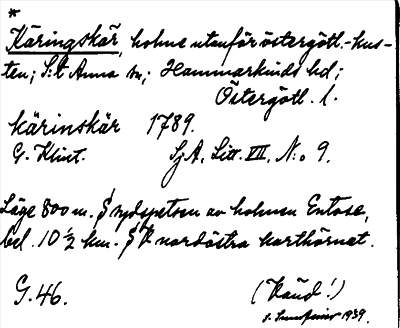 *
Käringskär, holme utanför östergötl.-kus-
ten; S:t Anna sn; Hammarkinds hd;
Östergötl. l.
Kärinskär 1789.
G. Klint. SjA, Litt. VII, N:o 9.
Läge 800 m. S sydspetsen av holmen Entose,
bel. 10 ½ km. S V nordöstra karthörnet.
G. 46.
1939.